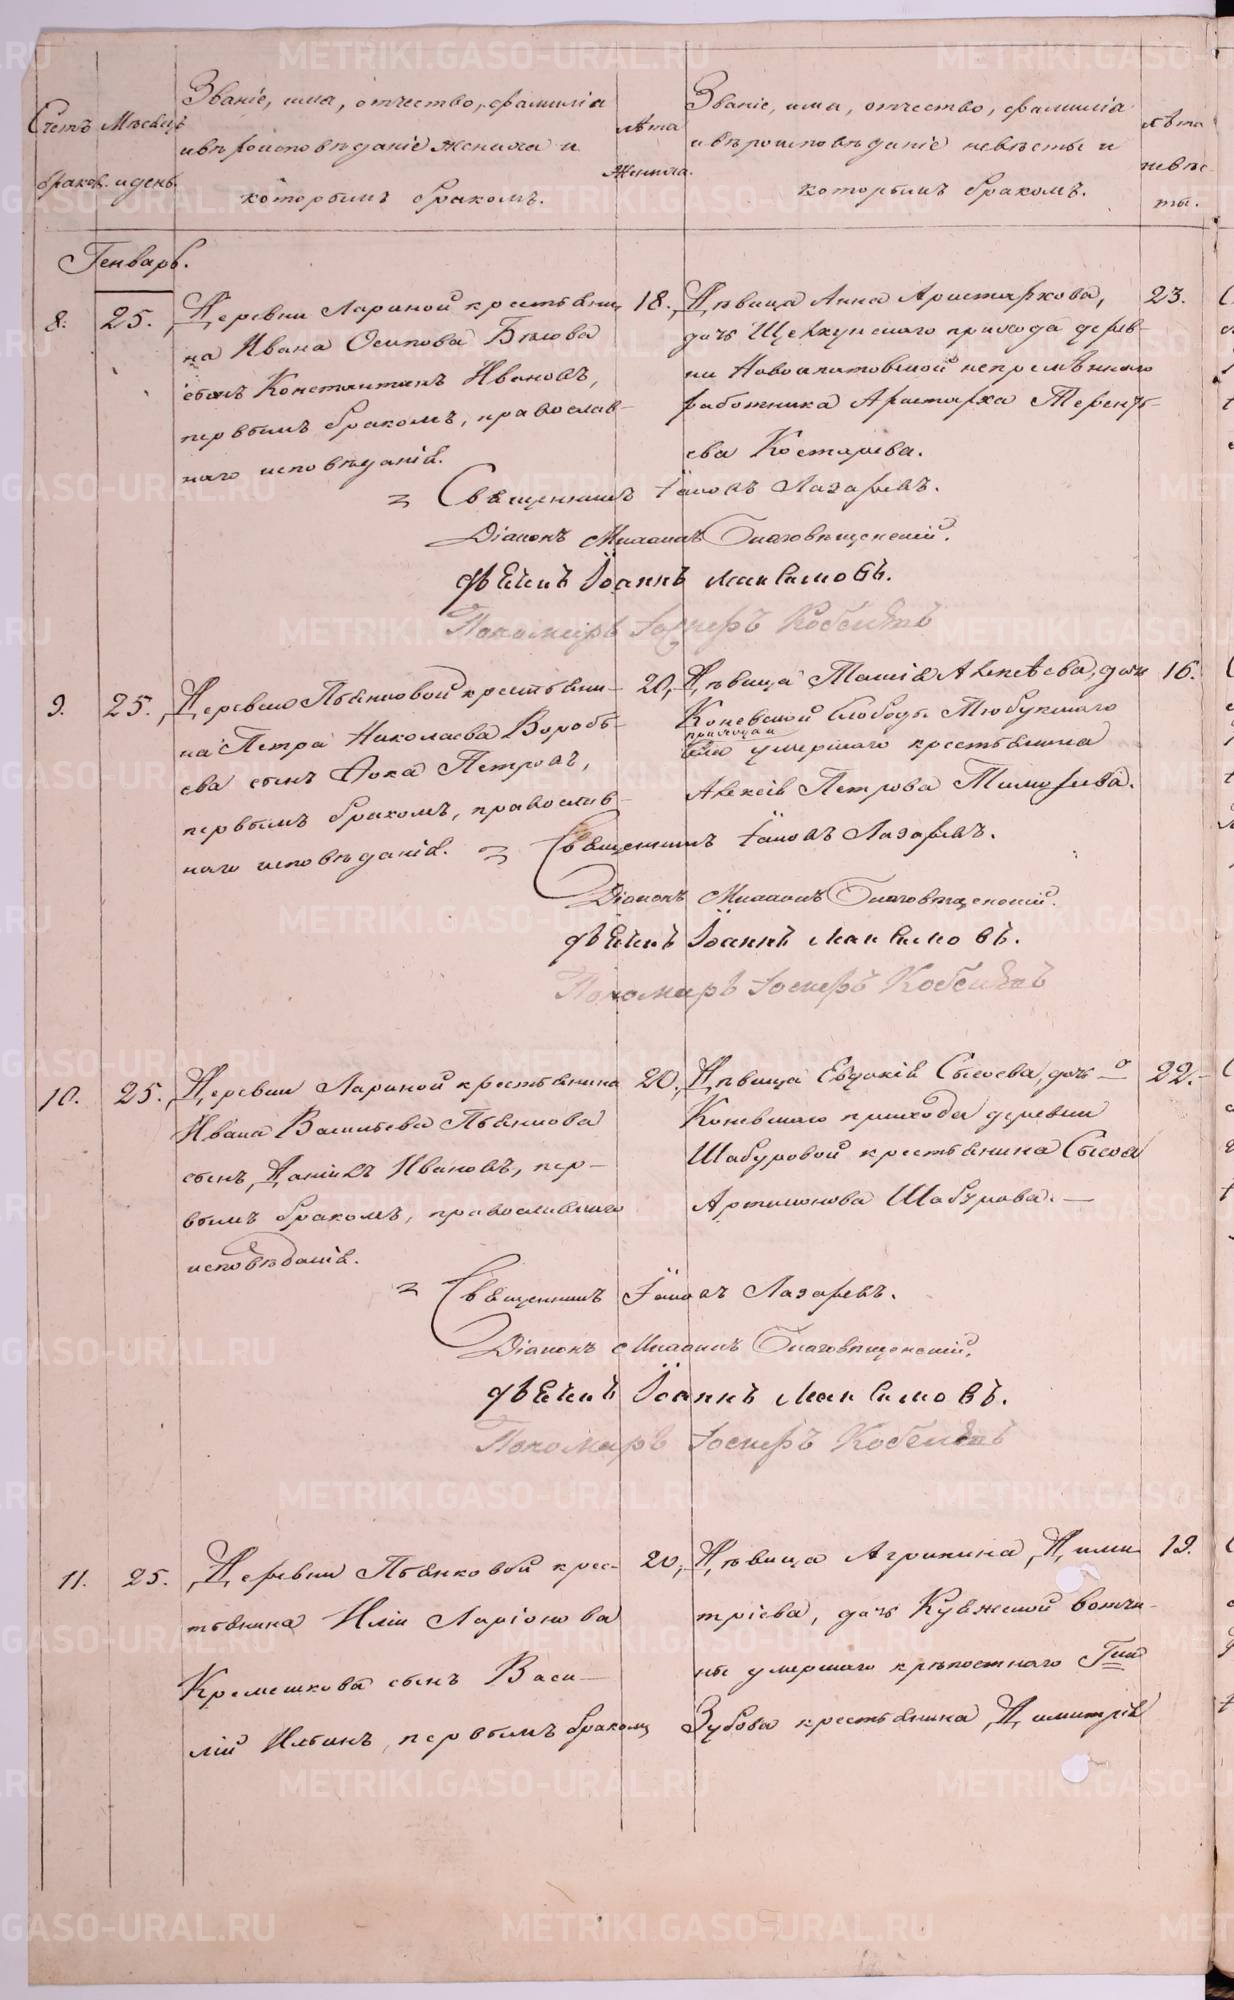 Счетъ браковъ.
Мѣсяцъ и день.
Званіе, имя, отчество, фамилія
и вѣроисповѣданіе жениха и
которымъ бракомъ.
лѣта
жениха.
Званіе, имя, отчество, фамилія
и вѣроисповѣданіе невѣсты и
которымъ бракомъ.
лѣта
невѣс-
ты.
Генварь.
8.
25.
Деревни Лариной крестьяни-
на Ивана Осипова Бѣлова
сынъ Константинъ Ивановъ,
первымъ бракомъ, православ-
наго исповѣданія.
18.
Дѣвица Анна Аристархова,
дочь Щелкунскаго прихода дерев-
ни Новоипатовской непремѣннаго
работника Аристарха Терентъ-
ева Костарева.
23.
Священникъ Іаковъ Лазаревъ.
Діаконъ Михаилъ Благовѣщенскій.
Дьячекъ Іоаннъ Максимовъ.
Пономарь
9.
25.
Деревни Пьянковой крестьяни-
на Петра Николаева Воробь-
ева сынъ Фока Петровъ,
первымъ бракомъ, православ-
наго исповѣданія.
20,
Дѣвица Таисія Алексѣева, дочь
Коневской Слободы Тюбукскаго
прихода
умершаго крестьянина
Алексѣя Петрова Тимофеева.
16.
Священникъ Іаковъ Лазаревъ.
Діаконъ Михаилъ Благовѣщенскій.
Дьячекъ Іоаннъ Максимовъ.
Пономарь
10.
25.
Деревни Лариной крестьянина
Ивана Васильева Пьянкова
сынъ, Даніилъ Ивановъ, пер-
вымъ бракомъ, православнаго
исповѣданія.
20,
Дѣвица Евдокія Сысоева, дочь
Коневскаго прихода деревни
Шабуровой крестьянина Сысоя
Артамонова Шабурова.
22.
Священникъ Іаковъ Лазаревъ.
Діаконъ Михаилъ Благовѣщенскій.
Дьячекъ Іоаннъ Максимовъ.
Пономарь
11.
25.
Деревни Пьянковой крес-
тьянина Иліи Ларіонова
Кремешкова сынъ Васи-
лій Ильинъ, первымъ бракомъ
20,
Дѣвица Агрипина, Дими-
тріева, дочь Куяжской вотчи-
ны умершаго крѣпостнаго Гна
Зубова крестьянина Димитрія
19.
METRIKI.GASO-URAL.RU